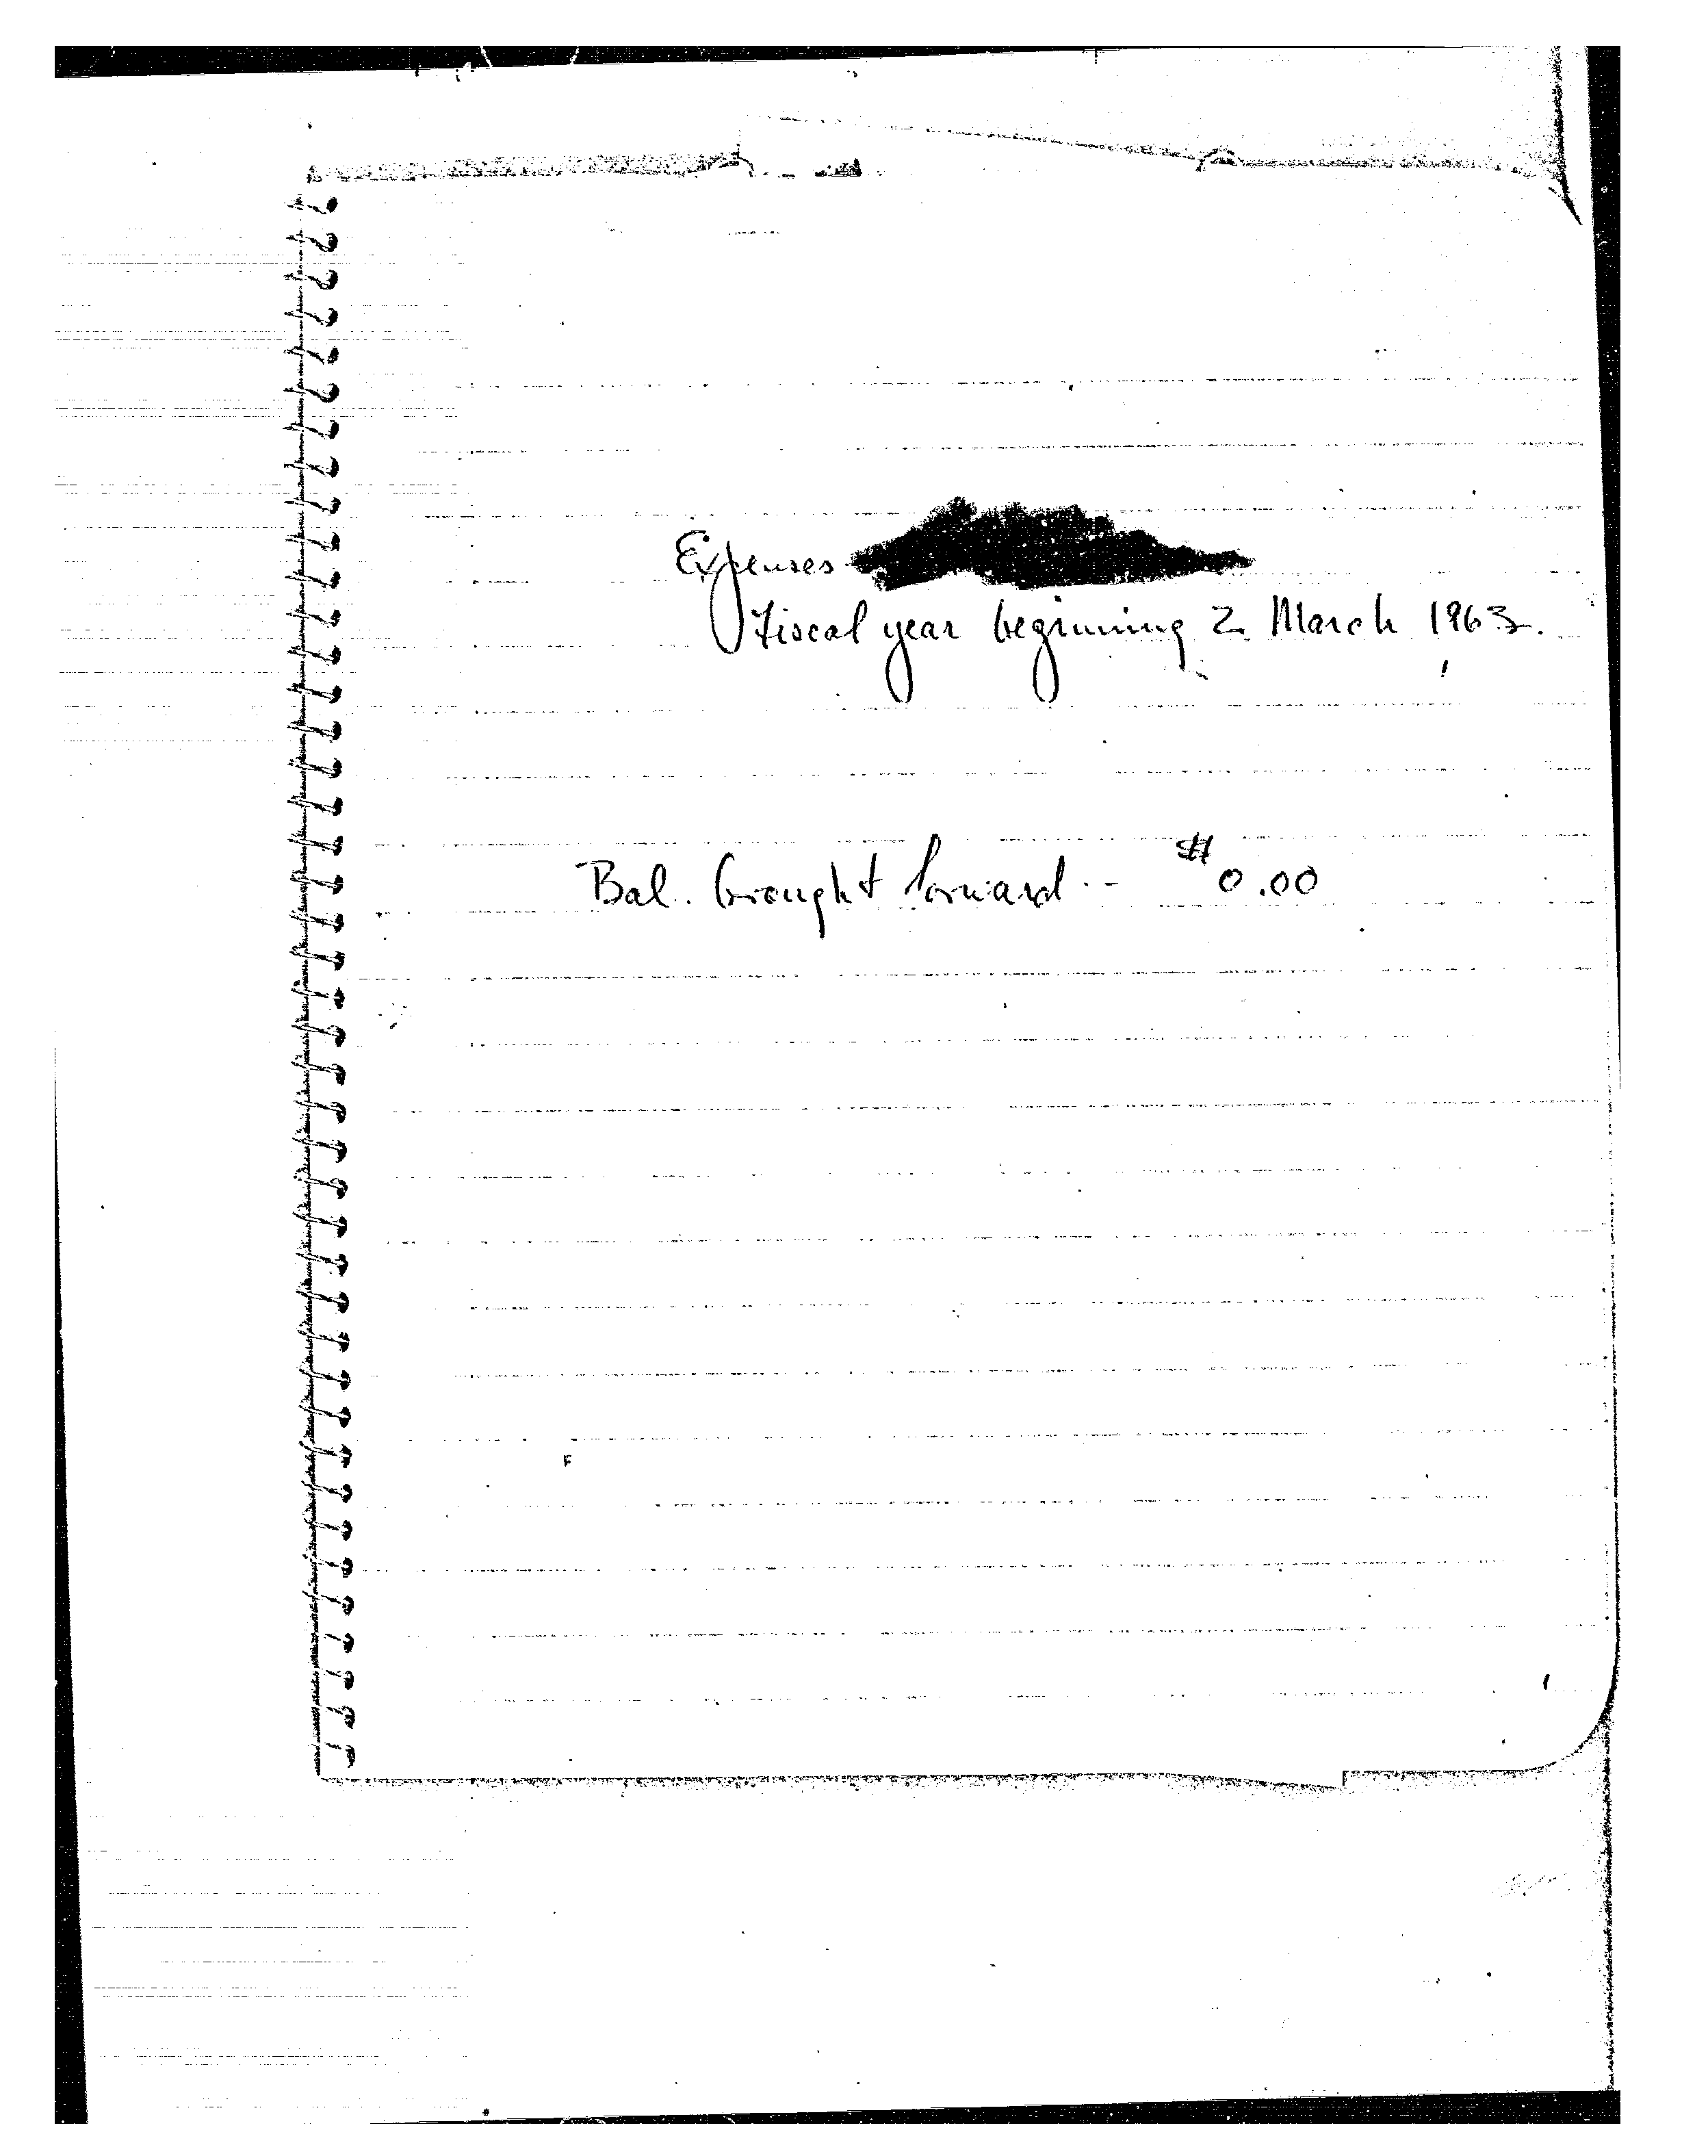 Expenses
Fiscal year beginning 2 March 1963.
Bal. brought forward -- $0.00